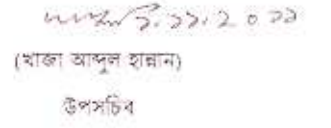 ১.১১.২০১১
(খাজা আব্দুল হান্নান)
উপসচিব